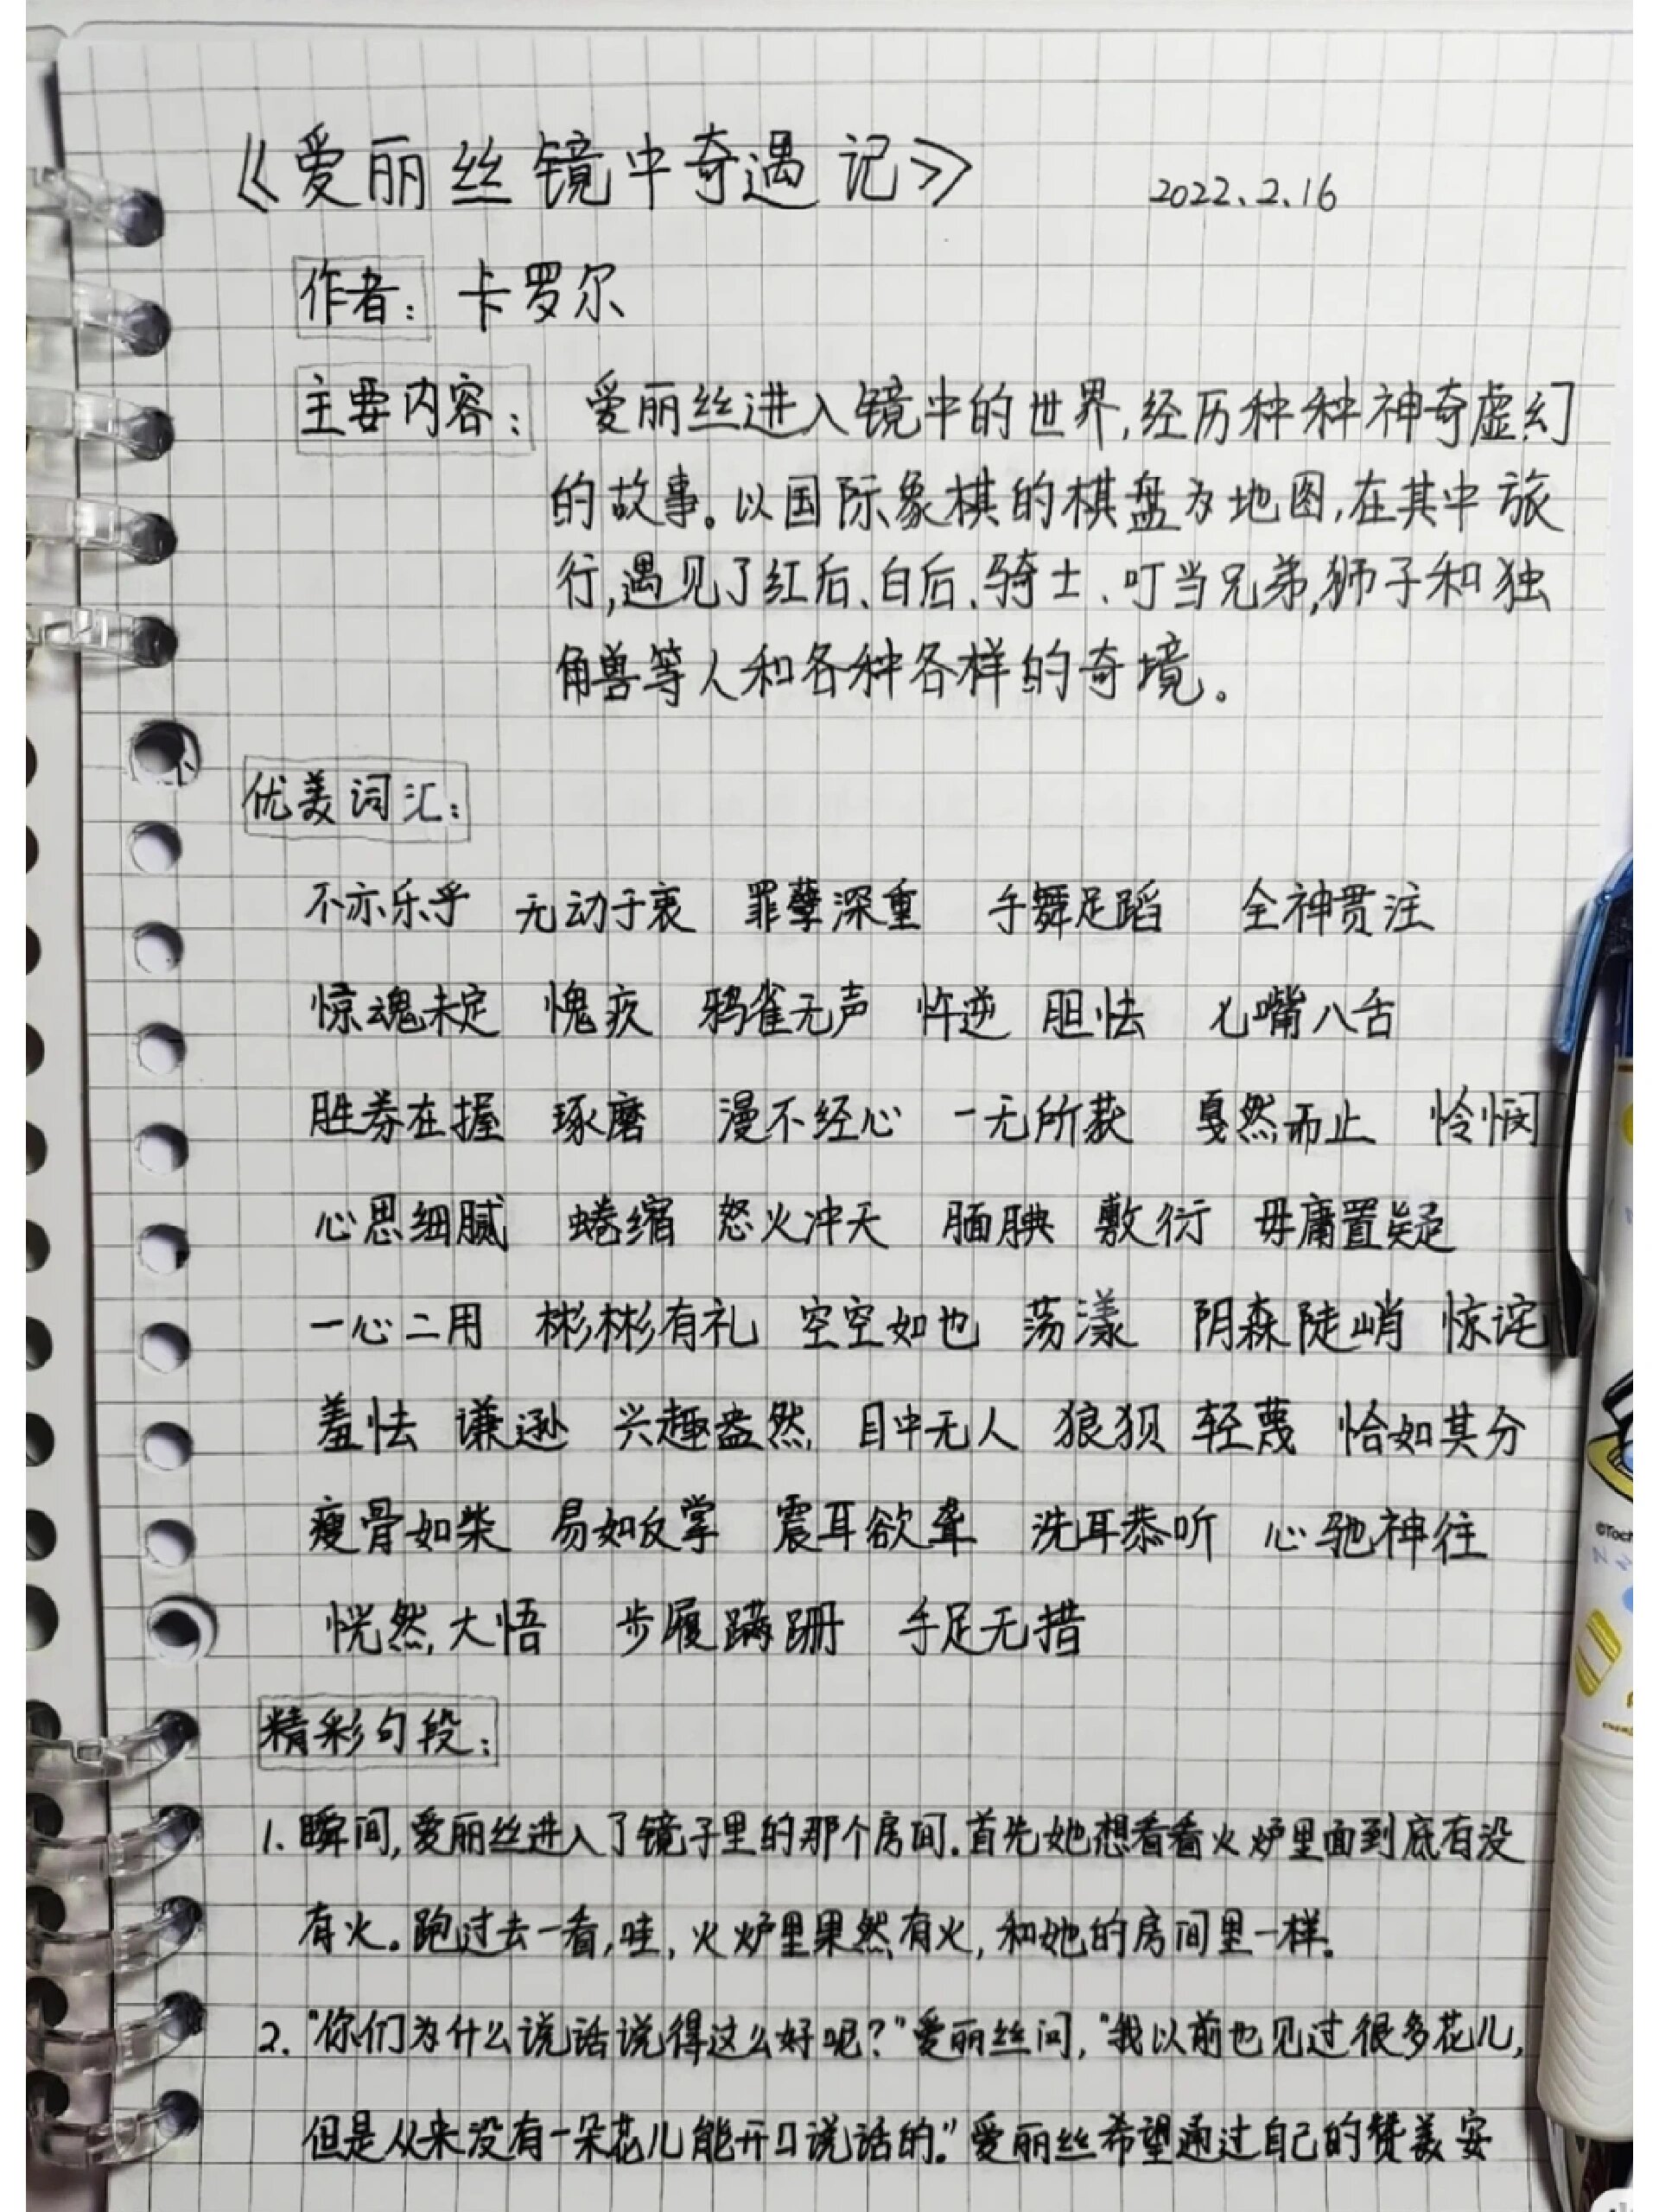 《爱丽丝镜中奇遇记》 2022.2.16
作者：卡罗尔
主要内容： 爱丽丝进入镜中的世界,经历种种神奇虚幻
的故事。以国际象棋的棋盘为地图,在其中旅
行,遇见了红后、白后、骑士、叮当兄弟,狮子和独
角兽等人和各种各样的奇境。
优美词汇：
不亦乐乎 无动于衷 罪孽深重 手舞足蹈 全神贯注
惊魂未定 愧疚 鸦雀无声 忤逆 胆怯 七嘴八舌
胜券在握 琢磨 漫不经心 一无所获 戛然而止 怜悯
心思细腻 蜷缩 怒火冲天 腼腆 敷衍 毋庸置疑
一心二用 彬彬有礼 空空如也 荡漾 阴森陡峭 惊诧
羞怯 谦逊 兴趣盎然 目中无人 狼狈 轻蔑 恰如其分
瘦骨如柴 易如反掌 震耳欲聋 洗耳恭听 心驰神往
恍然大悟 步履蹒跚 手足无措
精彩句段：
1. 瞬间,爱丽丝进入了镜子里的那个房间.首先她想看看火炉里面到底有没
有火。跑过去一看,哇,火炉里果然有火,和她的房间里一样.
2. "你们为什么说话说得这么好呢?"爱丽丝问,"我以前也见过很多花儿,
但是从来没有一朵花儿能开口说话的."爱丽丝希望通过自己的赞美安
©Toch